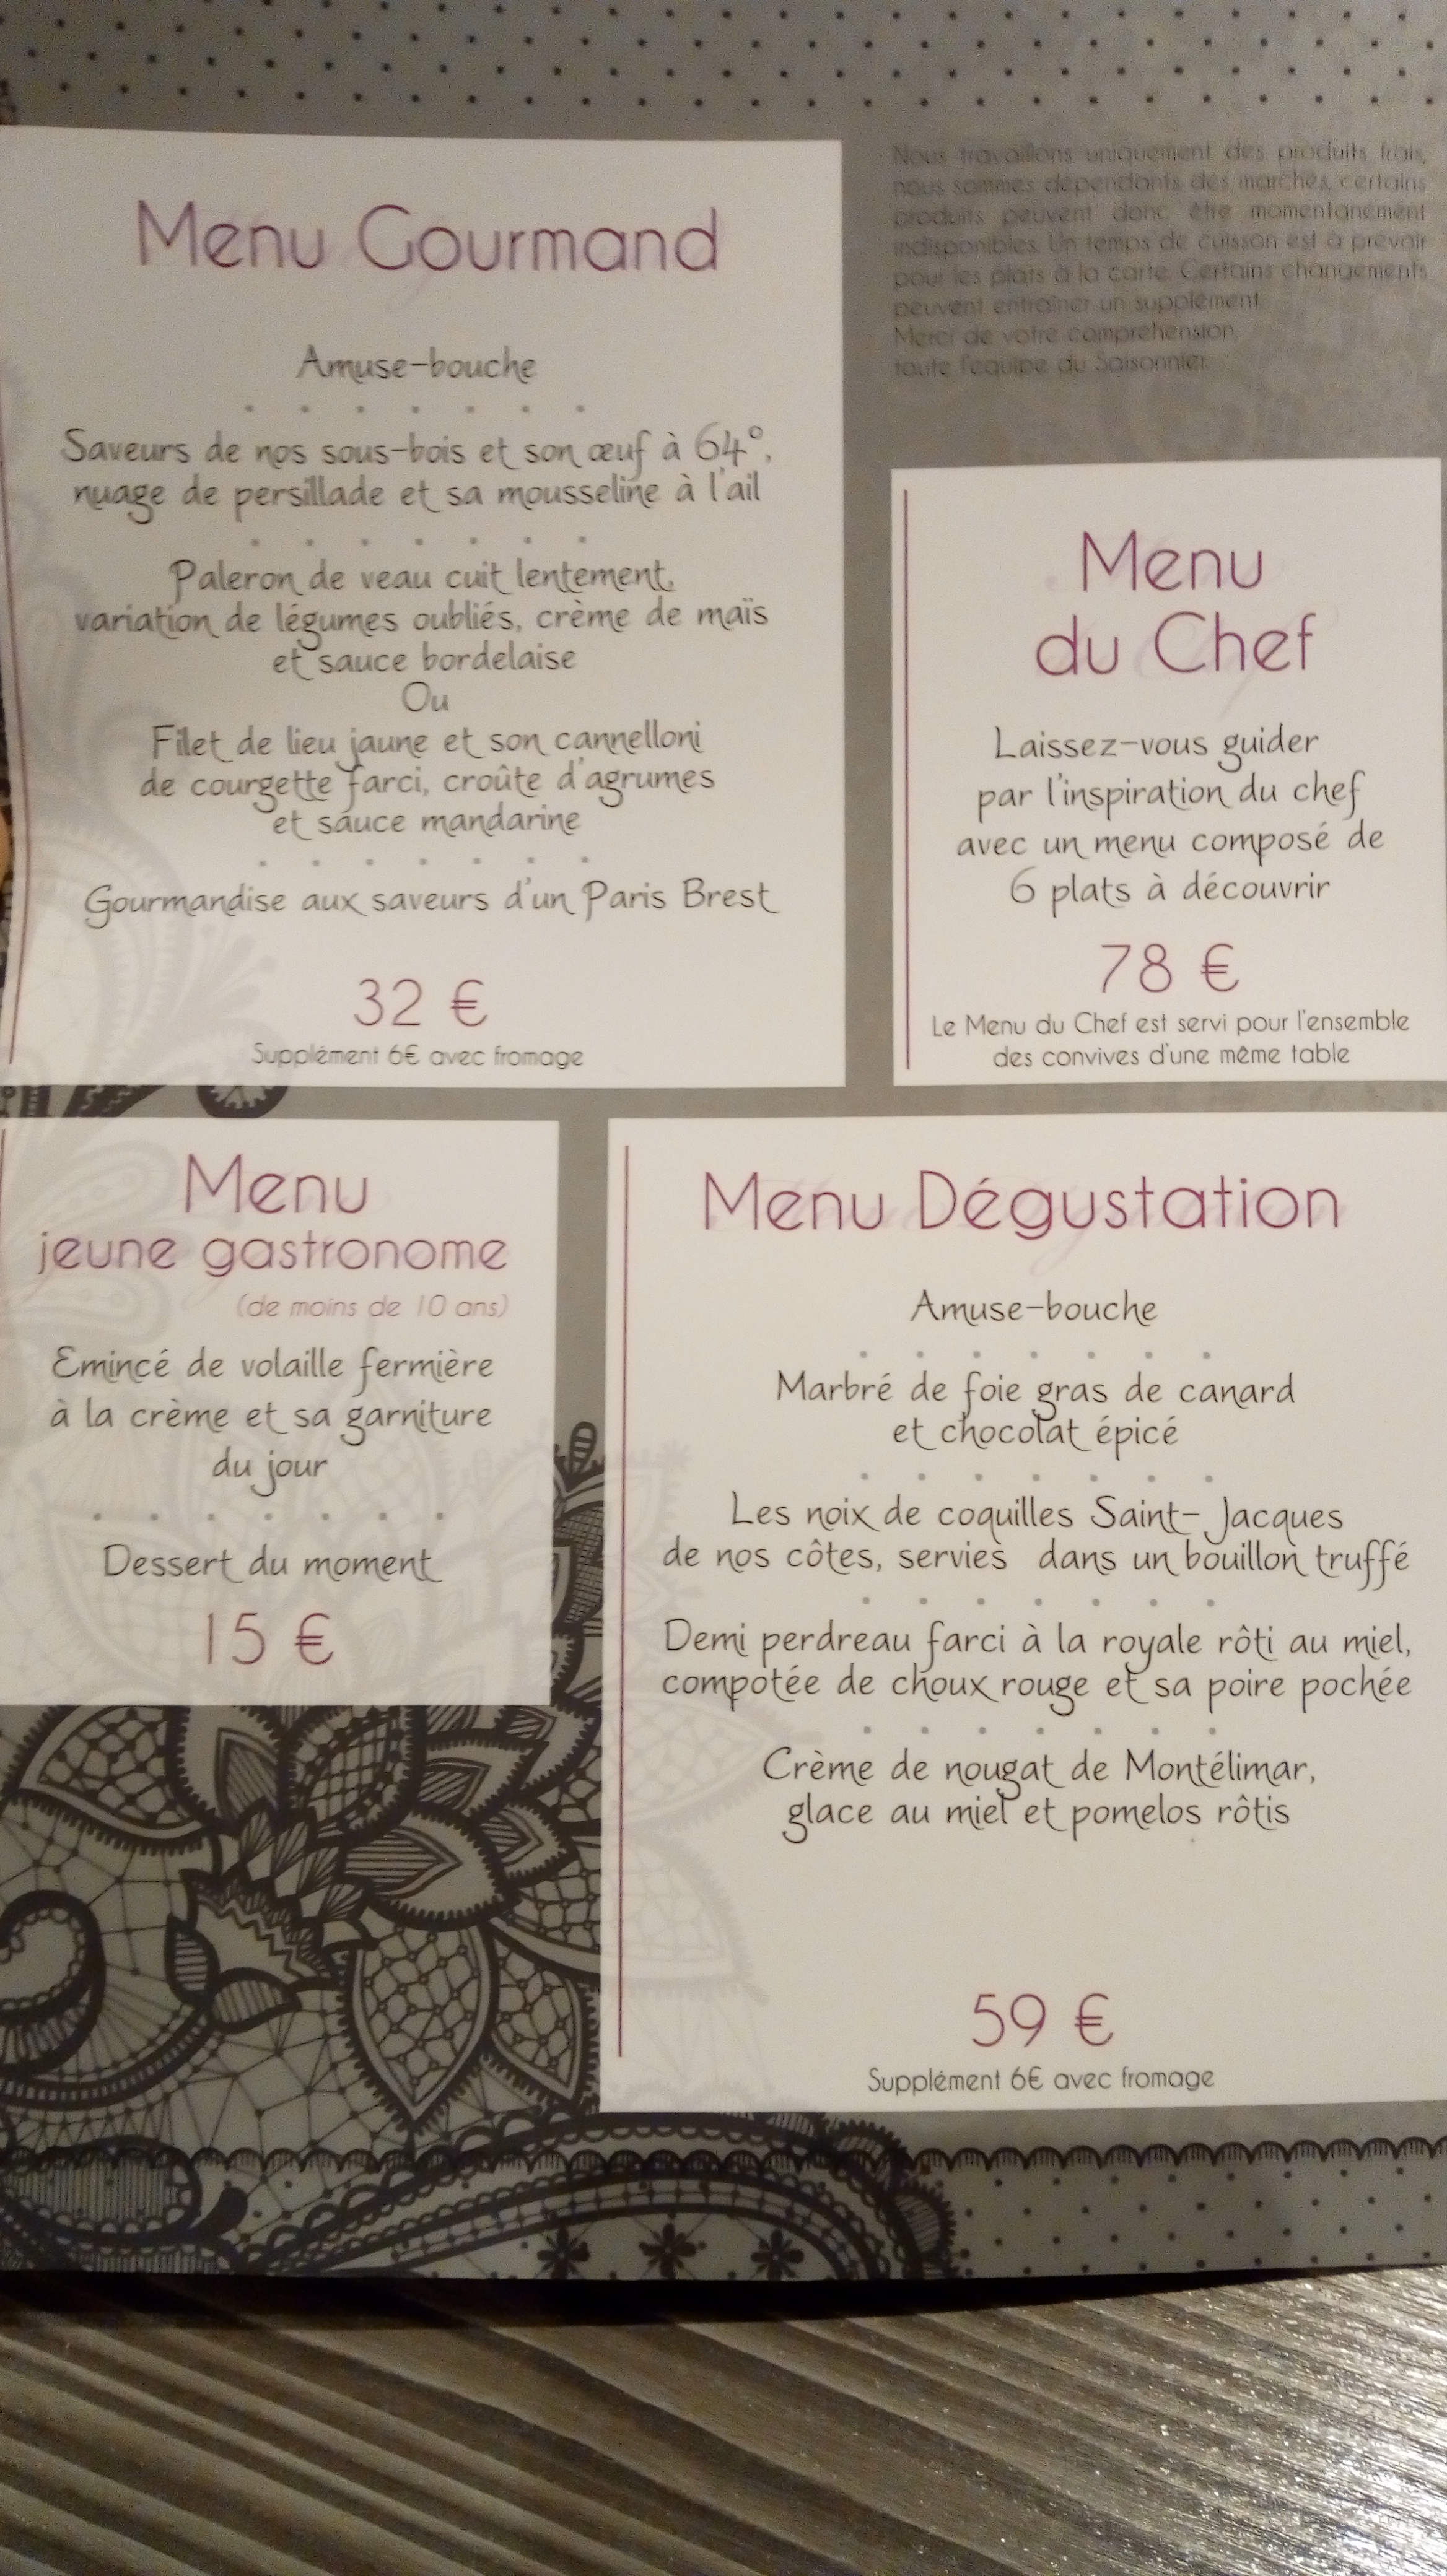 Menu Gourmand
Amuse-bouche
Saveurs de nos sous-bois et son œuf à 64°,
nuage de persillade et sa mousseline à l'ail
Paleron de veau cuit lentement,
variation de légumes oubliés, crème de maïs
et sauce bordelaise
Ou
Filet de lieu jaune et son cannelloni
de courgette farci, croûte d'agrumes
et sauce mandarine
Gourmandise aux saveurs d'un Paris Brest
32 €
Supplément 6€ avec fromage
Nous travaillons uniquement des produits frais,
nous sommes dépendants des marchés, certains
produits peuvent donc être momentanément
indisponibles. Un temps de cuisson est à prévoir
pour les plats à la carte. Certains changements
peuvent entraîner un supplément.
Merci de votre compréhension,
toute l'équipe du Saisonnier.
Menu
du Chef
Laissez-vous guider
par l'inspiration du chef
avec un menu composé de
6 plats à découvrir
78 €
Le Menu du Chef est servi pour l'ensemble
des convives d'une même table
Menu
jeune gastronome
(de moins de 10 ans)
Emincé de volaille fermière
à la crème et sa garniture
du jour
Dessert du moment
15 €
Menu Dégustation
Amuse-bouche
Marbré de foie gras de canard
et chocolat épicé
Les noix de coquilles Saint- Jacques
de nos côtes, servies dans un bouillon truffé
Demi perdreau farci à la royale rôti au miel,
compotée de choux rouge et sa poire pochée
Crème de nougat de Montélimar,
glace au miel et pomelos rôtis
59 €
Supplément 6€ avec fromage